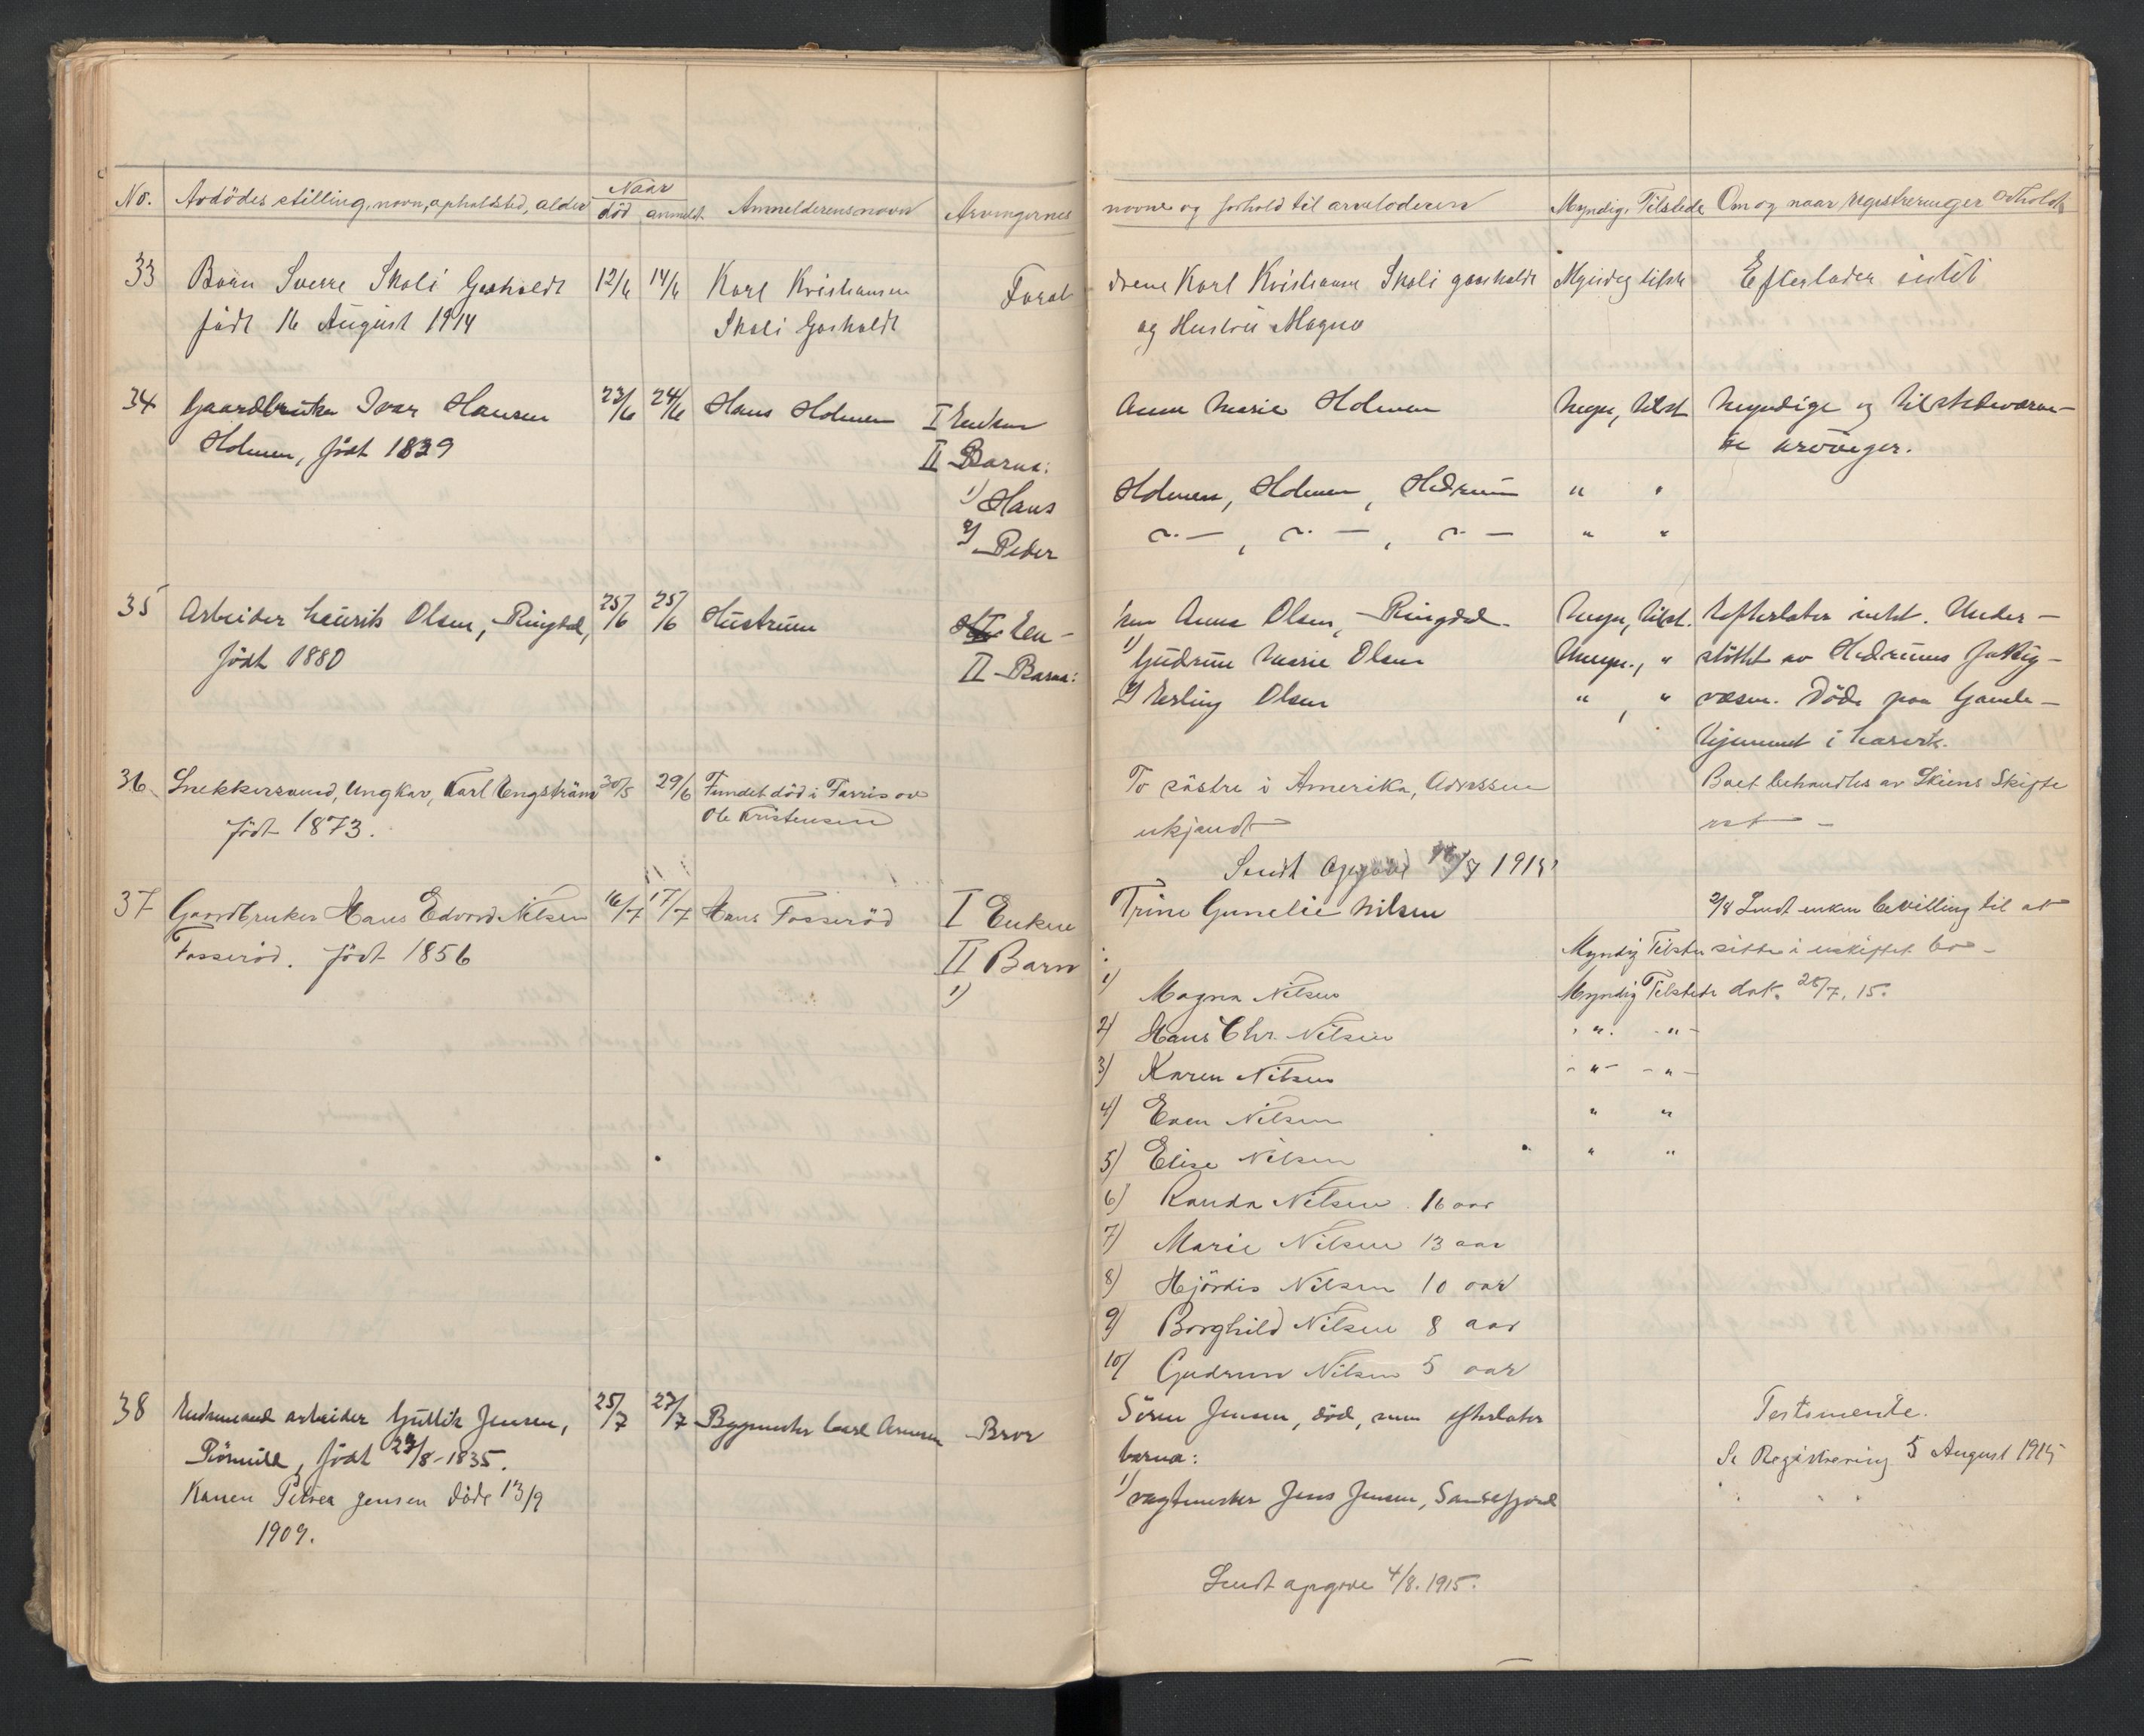 No. Avdödes stilling, navn, opholdsted, alder Naar Anmelderens navn Arvingernes navne og forhold til arveladeren Myndig, Tilstede Om og naar registreringer avholdt
död anmeldt
33 Barn Sverre Skoli Gasholdt 12/6 14/6 Karl Kristiansen Foreldrene Karl Kristiansen Skoli Gasholdt Myndig tilste Efterlader intet
födt 16 August 1914 Skoli Gasholdt og Hustru Magna
34 Gaardbruker Ivar Hansen 23/6 24/6 Hans Holmen I Enken Anne Marie Holmen Mynd, tilst. Myndige og tilstedeværen-
Holmen, födt 1839 II Barna: de arvinger.
1) Hans Holmen, Holmen, Hedrum " "
2) Peder —"—, —"—, —"— " "
35 Arbeider Laurits Olsen, Ringdal, 25/6 25/6 Hustruen I En-ken Anna Olsen, Ringdal. Mynd, tilst. Efterlater intet. Under-
födt 1880 II Barna: 1) Gudrun Marie Olsen Umyn., " stöttet av Hedrums fattig-
2) Erling Olsen " , " væsen. Döde paa Gamle-
hjemmet i Larvik.
36 Snekkersvend, Ungkar, Karl Engström 30/5 29/6 Fundet död i Farris av To söstre i Amerika, Adressen Boet behandles av Skiens Skifte
födt 1873. Ole Kristensen ukjendt ret —
Sendt opgave /7 1915
37 Gaardbruker Hans Edvard Nilsen 16/7 17/7 Hans Fosseröd I Enken Trine Gunelie Nilsen 2/8 Sendt enken bevilling til at
Fosseröd. födt 1856 II Barn : Myndig Tilste sitte i uskiftet bo-
1) 1) Magna Nilsen Myndig Tilstede dat. 28/7. 15.
2) Hans Chr. Nilsen -"- -"-
3) Karen Nilsen -"- -"-
4) Even Nilsen " "
5) Elise Nilsen " "
6) Randa Nilsen 16 aar
7) Marie Nilsen 13 aar
8) Hjördis Nilsen 10 aar
9) Borghild Nilsen 8 aar
10) Gudrun Nilsen 5 aar
38 Enkemand arbeider Gullik Jensen, 25/7 27/7 Bygmester Carl Arnesen Bror Sören Jensen, död, som efterlater Testamente.
födt 27/8-1835. barna: Se Registrering 5 August 1915
Karen Petrea Jensen döde 13/9 1) vagtmester Jens Jensen, Sandefjord
1909.
Sendt opgave 4/8. 1915.